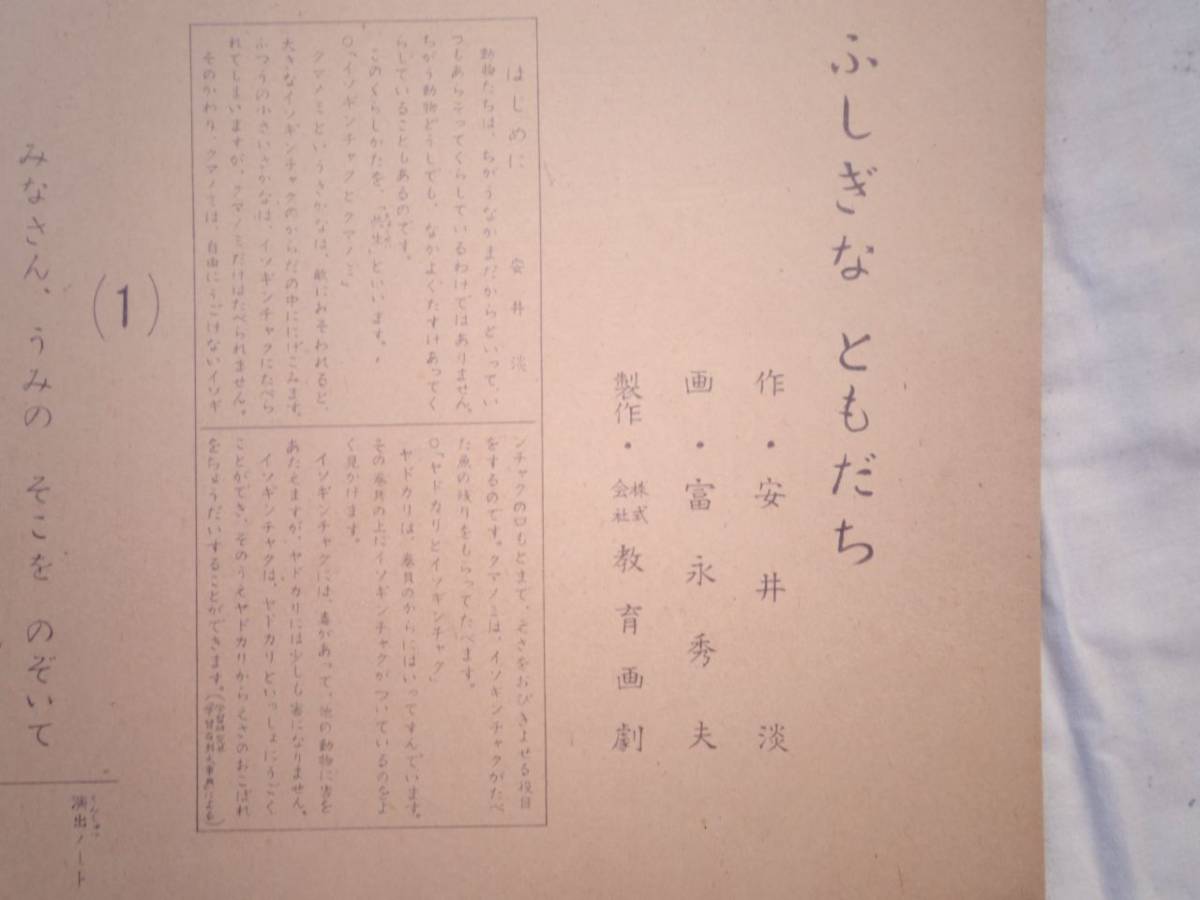 ふしぎな ともだち
作・安井 淡
画・富永秀夫
製作・株式会社 教育画劇
はじめに 安井 淡
動物たちは、ちがうなかまだからといって、い
つもあらそってくらしているわけではありません。
ちがう動物どうしでも、なかよくたすけあってく
らしていることもあるのです。
このくらしかたを、「共生」といいます。
○「イソギンチャクとクマノミ」
クマノミというさかなは、敵におそわれると、
大きなイソギンチャクのからだの中ににげこみます。
ふつうの小さいさかなは、イソギンチャクにたべら
れてしまいますが、クマノミだけはたべられません。
そのかわり、クマノミは、自由にうごけないイソギ
ンチャクの口もとまで、えさをおびきよせる役目
をするのです。クマノミは、イソギンチャクがたべ
た魚の残りをもらってたべます。
○「ヤドカリとイソギンチャク」
ヤドカリは、巻貝のからにはいってすんでいます。
その巻貝の上にイソギンチャクがついているのをよ
く見かけます。
イソギンチャクには、毒があって、他の動物に害を
あたえますが、ヤドカリには少しも害になりません。
イソギンチャクは、ヤドカリといっしょにうごく
ことができ、そのうえヤドカリからえさのおこぼれ
をちょうだいすることができます。
(1)
みなさん、うみの そこを のぞいて
演出ノート